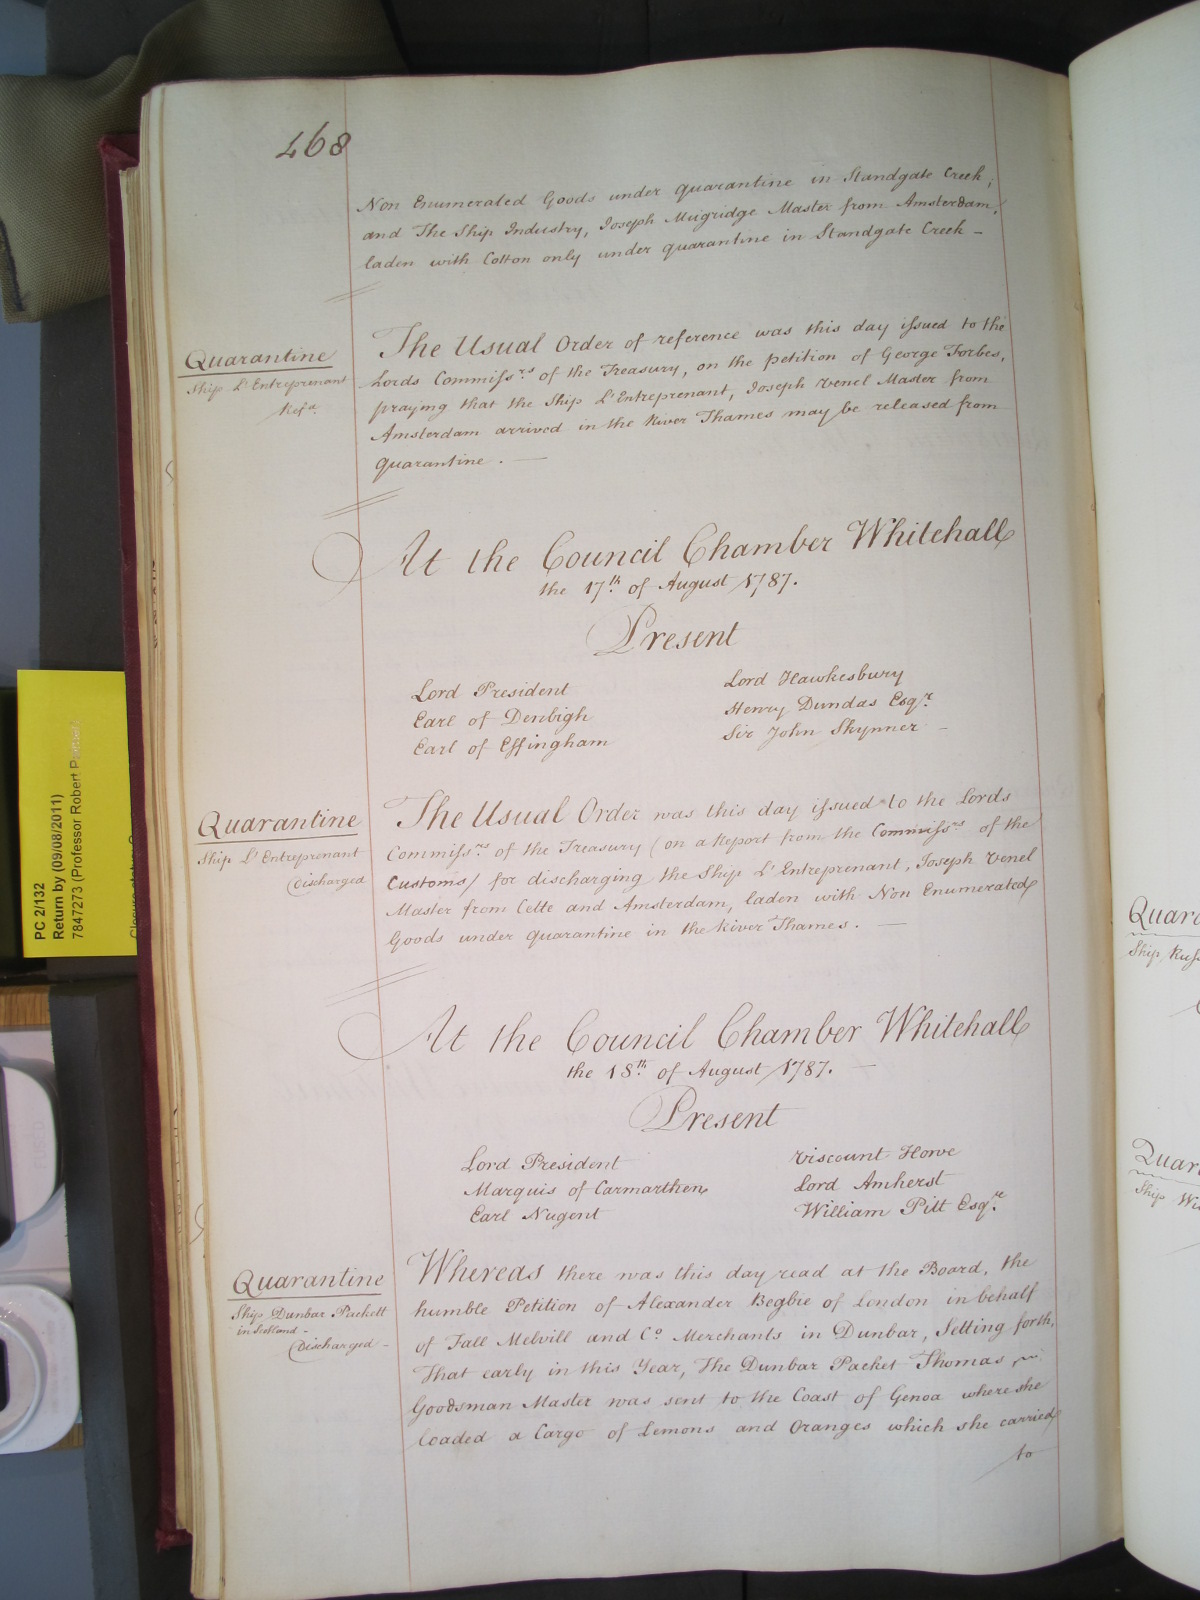 468
Non Enumerated Goods under quarantine in Standgate Creek;
and The Ship Industry, Joseph Mugridge Master from Amsterdam,
laden with Cotton only under quarantine in Standgate Creek –
Quarantine
Ship L'Entreprenant
Ref.ce
The Usual Order of reference was this day issued to the
Lords Commiss.rs of the Treasury, on the petition of George Forbes,
praying that the Ship L'Entreprenant, Joseph Venel Master from
Amsterdam arrived in the River Thames may be released from
quarantine. —
At the Council Chamber Whitehall
the 17.th of August 1787.
Present
Lord President
Earl of Denbigh
Earl of Effingham
Lord Hawkesbury
Henry Dundas Esq.r
Sir John Skynner –
Quarantine
Ship L'Entreprenant
Discharged
The Usual Order was this day issued to the Lords
Commiss.rs of the Treasury (on a Report from the Commiss.rs of the
Customs) for discharging the Ship L'Entreprenant, Joseph Venel
Master from Cette and Amsterdam, laden with Non Enumerated
Goods under quarantine in the River Thames. —
At the Council Chamber Whitehall
the 18.th of August 1787. —
Present
Lord President
Marquis of Carmarthen
Earl Nugent
Viscount Howe
Lord Amherst
William Pitt Esq.re
Quarantine
Ship Dunbar Packett
in Scotland –
Discharged –
Whereas there was this day read at the Board, the
humble Petition of Alexander Begbie of London in behalf
of Fall Melvill and C.o Merchants in Dunbar, Setting forth,
That early in this Year, The Dunbar Packet Thomas
Goodsman Master was sent to the Coast of Genoa where she
loaded a Cargo of Lemons and Oranges which she carried
to
PC 2/132
Return by (09/08/2011)
7847273 (Professor Robert
Quar
Ship
Quar
Ship